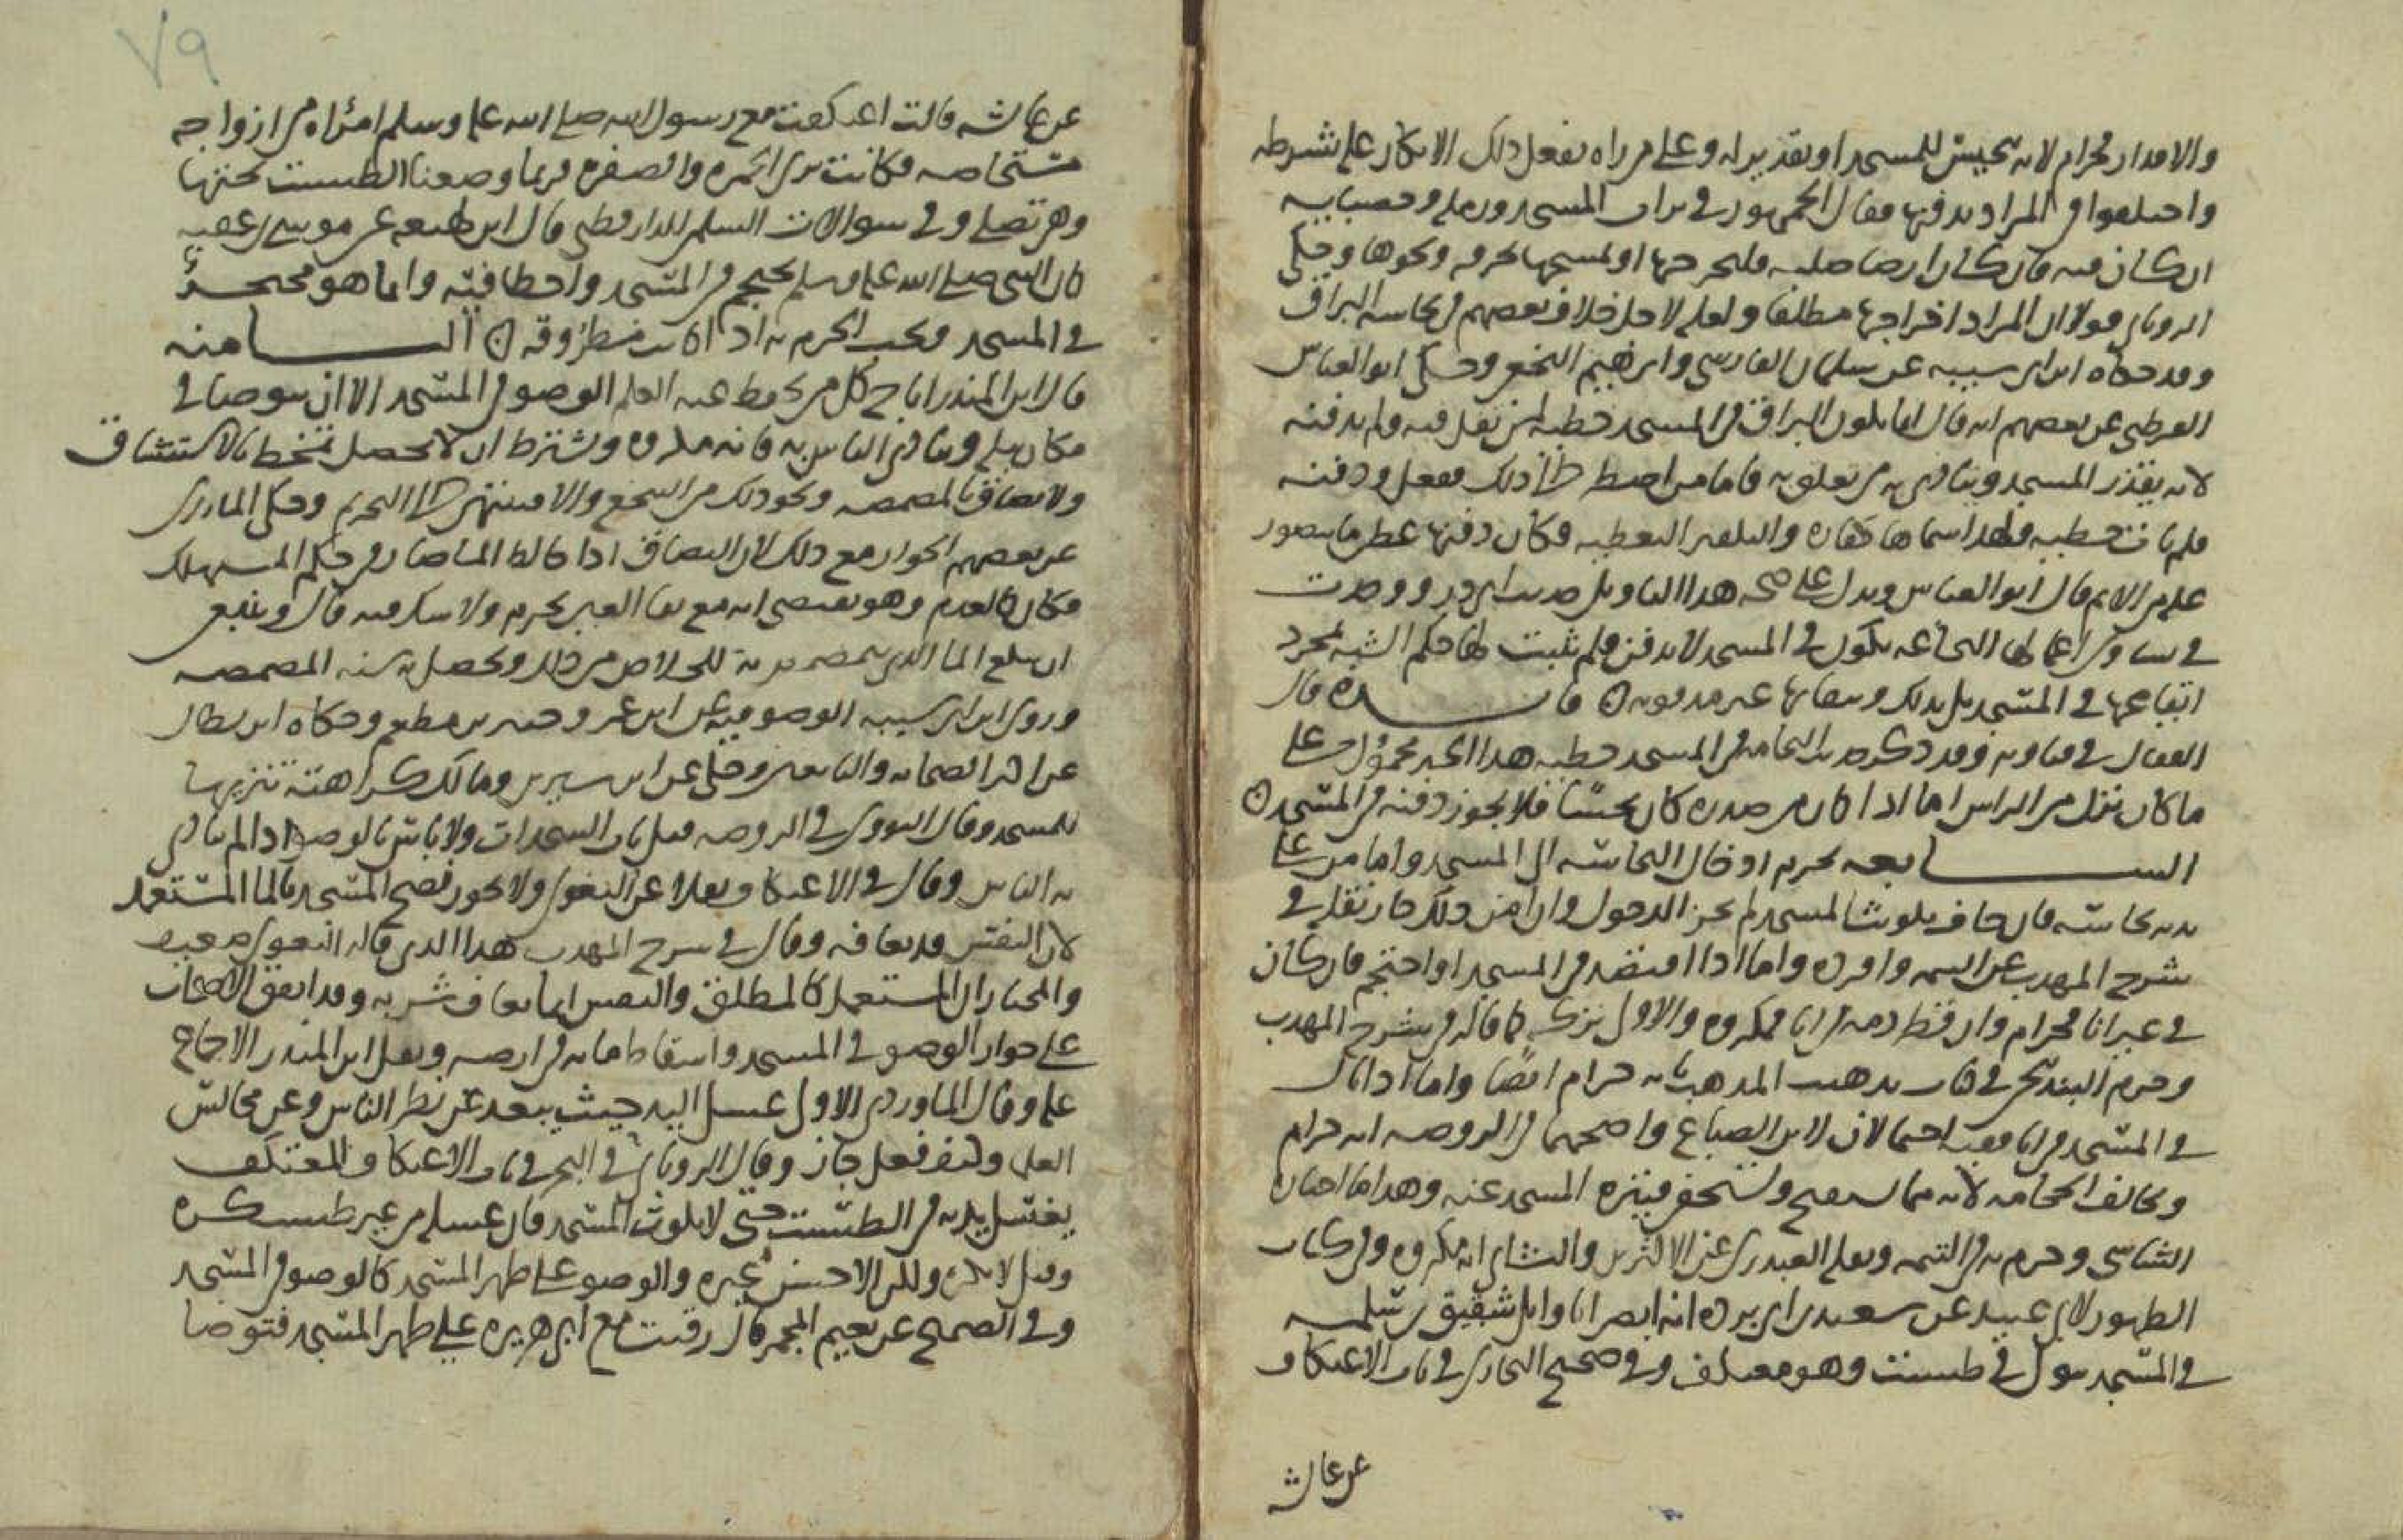 والاقدار فحرام لانه تنجيس للمسجد او تقذير له وعلى من راه يفعل ذلك الانكار على شرطه
واختلفوا في المراد بدفنها فقال الجمهور في تراب المسجد ورمله وحصبايه
ان كان فيه فان كان ارضا صلبه فليخرجها او لمسحها بخرقه ونحوها وحكى
الروياني قولا ان المراد اخراجها مطلقا ولعله لاجل خلاف بعضهم في نجاسه البزاق
وقد حكاه ابن ابي شيبه عن سلمان الفارسي وابرهيم النخعي وحكى ابو العباس
القرطبي عن بعضهم انه قال انما يكون البزاق في المسجد خطيه لمن تفل فيه ولم يدفنه
لانه يقذر المسجد ويتاذى به من يعلق به فاما من اضطر الى ذلك ففعل ودفنه
فلم يات خطيه ولهذا سماها كفاره والتكفير التغطيه فكان دفنها غطى ما يتصور
عليه من الاثم قال ابو العباس ويدل على صحه هذا التاويل حديث ابي ذر ووجدت
في مساوي اعمالها النخاعه تكون في المسجد لا تدفن فلم يثبت لها حكم السيه بمجرد
ايقاعها في المسجد بل بذلك وببقايها غير مدفونه فايـــده قال
القفال في فتاويه وقد ذكر حديث النخامه في المسجد خطيه هذا الخبر محمول على
ما كان ينزل من الراس اما اذا كان من صدره كان نجسا فلا يجوز دفنه في المسجد
الســـابعه يحرم ادخال النجاسه الى المسجد واما من على
بدنه نجاسه فان خاف تلويث المسجد لم يجز الدخول وان امن ذلك جاز نقله في
شرح المهذب عن التتمه واقره واما اذا افتصد في المسجد او احتجم فان كان
في غير انا فحرام وان قطر دمه في انا فمكروه والاولى تركه كما قاله في شرح المهذب
وحرم البندنيجي في كتاب تذهيب المذهب بانه حرام ايضا واما اذا بال
في المسجد في انا ففيه احتمالان لابن الصباغ واصحهما في الروضه انه حرام
ويخالف الحجامه لانه مما يستقبح ويستخفى فينزه المسجد عنه وهذا ما اختاره
الشاشي وجزم به في التتمه ونقله العبدري عن الاكثرين والثاني انه مكروه وفي كتاب
الطهور لابي عبيد عن سعيد بن ابي برده انه ابصر ابا وايل شقيق بن سلمه
في المسجد يبول في طست وهو معتكف وفي صحيح البخاري في باب الاعتكاف
عن عايشه
٧٩
عن عايشه قالت اعتكفت مع رسول الله صلى الله عليه وسلم امراه من ازواجه
مستحاضه فكانت ترى الحمره والصفره فربما وضعنا الطست تحتها
وهي تصلي وفي سوالات السلمي للدارقطني قال ابن لهيعه عن موسى بن عقبه
كان النبي صلى الله عليه وسلم يحتجم في المسجد واخطا فيه وانما هو يحتجر
في المسجد ويجب الجزم به اذا كانت مطروقه الثـــامنه
قال ابن المنذر اباح كل من يحفظ عنه العلم الوضو في المسجد الا ان يتوضا في
مكان يبله ويتاذى الناس به فانه مكروه ويشترط ان لا يحصل تمخط بالاستنشاق
ولا بصاق بالمضمضه ونحو ذلك من التنخع والا فينتهي الى التحريم وحكى المازري
عن بعضهم الجواز مع ذلك لان البصاق اذا خالط الما صار في حكم المستهلك
فكان كالعدم وهو يقتضي انه مع بقا العين يحرم ولا شك فيه قال وينبغي
ان يبلع الما الذي تمضمض به للخلاص من ذلك ويحصل به سنه المضمضه
وروى ابن ابي شيبه الوضو فيه عن ابن عمر وجبير بن مطعم وحكاه ابن بطال
عن اكثر الصحابه والتابعين وحكى عن ابن سيرين ومالك كراهته تنزيها
للمسجد وقال النووي في الروضه قبل باب السجدات ولا باس بالوضو اذا لم يتاذى
به الناس وقال في الاعتكاف نقلا عن البغوي ولا يجوز نضح المسجد بالما المستعمل
لان النفس قد تعافه وقال في شرح المهذب هذا الذي قاله البغوي ضعيف
والمختار ان المستعمل كالمطلق والنفس انما تعاف شربه وقد اتفق الاصحاب
على جواز الوضو في المسجد واسقاط مايه في ارضه ونقل ابن المنذر الاجماع
عليه وقال الماوردي الاولى غسل اليد حيث يبعد عن نظر الناس وعن مجالس
العلما وكيف فعل جاز وقال الروياني في البحر في باب الاعتكاف والمعتكف
يغتسل يديه في الطست حتى لا يلوث المسجد فان غسله من غير طست كره
وقيل لا يكره ولكن الاحسن غيره والوضو على ظهر المسجد كالوضو في المسجد
وفي الصحيح عن نعيم المجمر قال رقيت مع ابي هريره على ظهر المسجد فتوضا